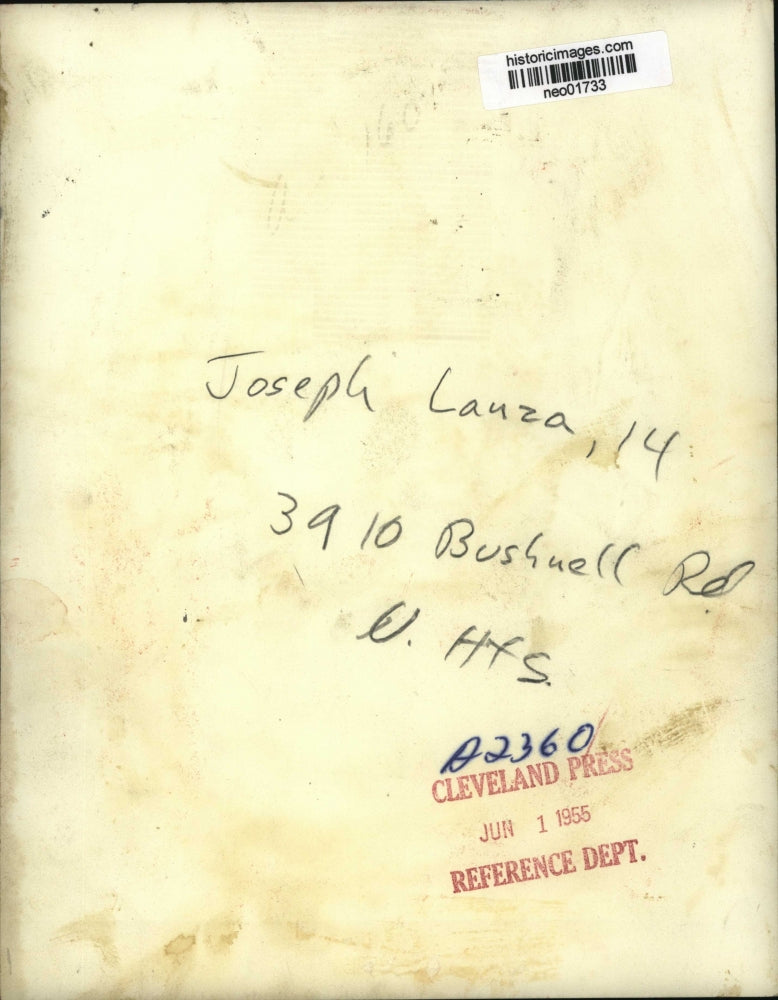 historicimages.com
neo01733
Joseph Lanza, 14
3910 Bushnell Rd
U. Hts.
A2360
CLEVELAND PRESS
JUN 1 1955
REFERENCE DEPT.